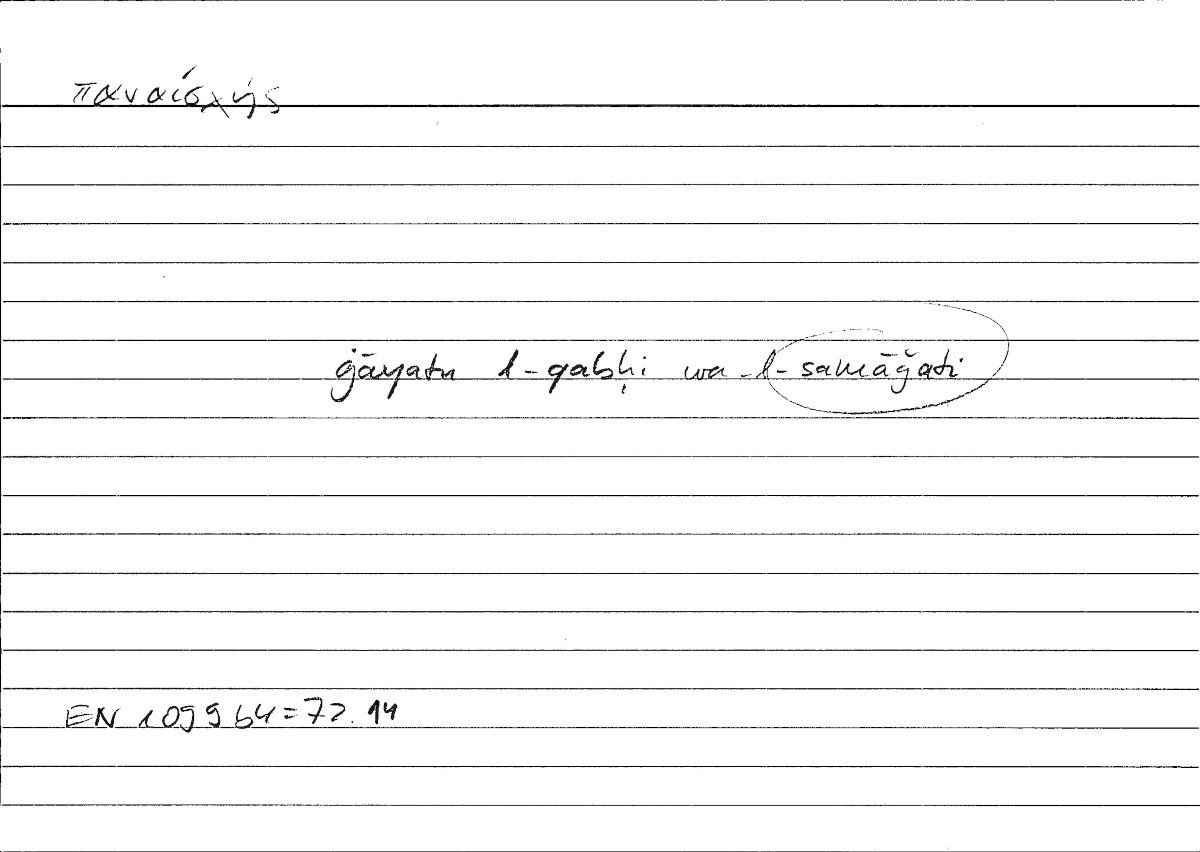 παναίσχής
ġāyatu l-qabḥi wa-l-samāǧati
EN 1099b4=72.14